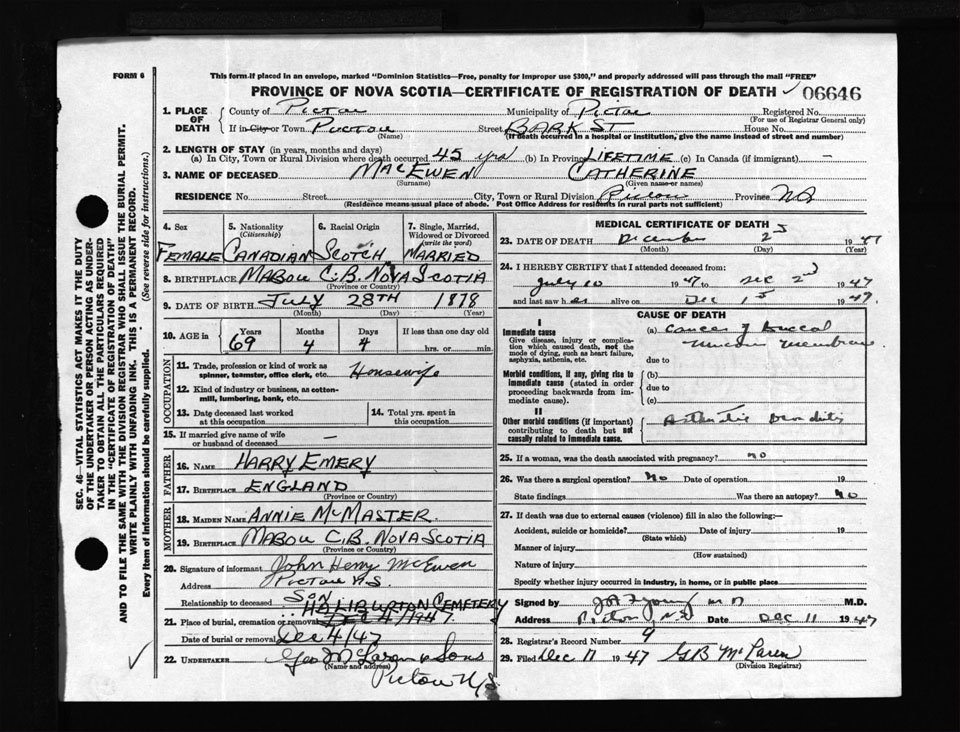 FORM 6
This form if placed in an envelope, marked "Dominion Statistics—Free, penalty for improper use $300," and properly addressed will pass through the mail "FREE"
PROVINCE OF NOVA SCOTIA—CERTIFICATE OF REGISTRATION OF DEATH ✓ 06646
1. PLACE OF DEATH
County of Pictou Municipality of Pictou Registered No.
(For use of Registrar General only)
If in City or Town Pictou Street BARK ST House No.
(Name) (If death occurred in a hospital or institution, give the name instead of street and number)
2. LENGTH OF STAY (in years, months and days)
(a) In City, Town or Rural Division where death occurred 45 yrs (b) In Province LIFETIME (c) In Canada (if immigrant) —
3. NAME OF DECEASED MACEWEN CATHERINE
(Surname) (Given name or names)
RESIDENCE No. Street City, Town or Rural Division Pictou Province NS
(Residence means usual place of abode. Post Office Address for residents in rural parts not sufficient)
4. Sex 5. Nationality (Citizenship) 6. Racial Origin 7. Single, Married, Widowed or Divorced (write the word)
FEMALE CANADIAN SCOTCH MARRIED
8. BIRTHPLACE MABOU C.B. NOVA SCOTIA
(Province or Country)
9. DATE OF BIRTH July 28TH 1878
(Month) (Day) (Year)
10. AGE in Years Months Days If less than one day old
69 4 4 hrs. or min.
OCCUPATION
11. Trade, profession or kind of work as spinner, teamster, office clerk, etc. Housewife
12. Kind of industry or business, as cotton-mill, lumbering, bank, etc.
13. Date deceased last worked at this occupation 14. Total yrs. spent in this occupation
15. If married give name of wife or husband of deceased —
FATHER
16. NAME HARRY EMERY
17. BIRTHPLACE ENGLAND
(Province or Country)
MOTHER
18. MAIDEN NAME ANNIE MCMASTER
19. BIRTHPLACE MABOU C.B. NOVA SCOTIA
(Province or Country)
20. Signature of informant John Henry McEwen
Address Pictou N.S.
Relationship to deceased Son
HALIBURTAN CEMETERY
21. Place of burial, cremation or removal DEC 4/1947
Date of burial or removal Dec 4/47
22. UNDERTAKER Geo McLaren & Sons
(Name and address)
Pictou N/S.
MEDICAL CERTIFICATE OF DEATH
23. DATE OF DEATH December 2 1947
(Month) (Day)
24. I HEREBY CERTIFY that I attended deceased from:
July 10 1947 to Dec 2nd 1947
and last saw her alive on Dec 1st 1947.
CAUSE OF DEATH
I
Immediate cause
Give disease, injury or complication which caused death, not the mode of dying, such as heart failure, asphyxia, asthenia, etc.
(a) Cancer of Buccal
Mucous Membrane
due to
Morbid conditions, if any, giving rise to immediate cause (stated in order proceeding backwards from immediate cause).
(b)
due to
(c)
II
Other morbid conditions (if important) contributing to death but not causally related to immediate cause.
Asthmatic Bronchitis
25. If a woman, was the death associated with pregnancy? no
26. Was there a surgical operation? No Date of operation 19
State findings Was there an autopsy? No
27. If death was due to external causes (violence) fill in also the following:—
Accident, suicide or homicide? Date of injury 19
(State which)
Manner of injury
(How sustained)
Nature of injury
Specify whether injury occurred in industry, in home, or in public place
Signed by Young M D M.D.
Address Pictou N.S Date DEC 11 1947
28. Registrar's Record Number 9
29. Filed Dec 11 1947 GB McLaren
(Division Registrar)
SEC. 46—VITAL STATISTICS ACT MAKES IT THE DUTY
OF THE UNDERTAKER OR PERSON ACTING AS UNDER-
TAKER TO OBTAIN ALL THE PARTICULARS REQUIRED
IN THE "CERTIFICATE OF REGISTRATION OF DEATH"
AND TO FILE THE SAME WITH THE DIVISION REGISTRAR WHO SHALL ISSUE THE BURIAL PERMIT.
WRITE PLAINLY WITH UNFADING INK. THIS IS A PERMANENT RECORD.
Every item of information should be carefully supplied. (See reverse side for instructions.)